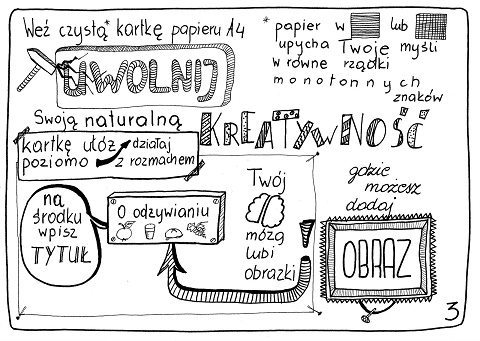 Weź czystą* kartkę papieru A4
* papier w lub
upycha Twoje myśli
w równe rządki
monotonnych
znaków
UWOLNIJ
Swoją naturalną
KREATYWNOŚĆ
kartkę utóż działaj
poziomo z rozmachem
na
środku
wpisz
TYTUŁ
O odżywianiu
Twój
mózg
lubi
obrazki
!
gdzie
możesz
dodaj
OBRAZ
3